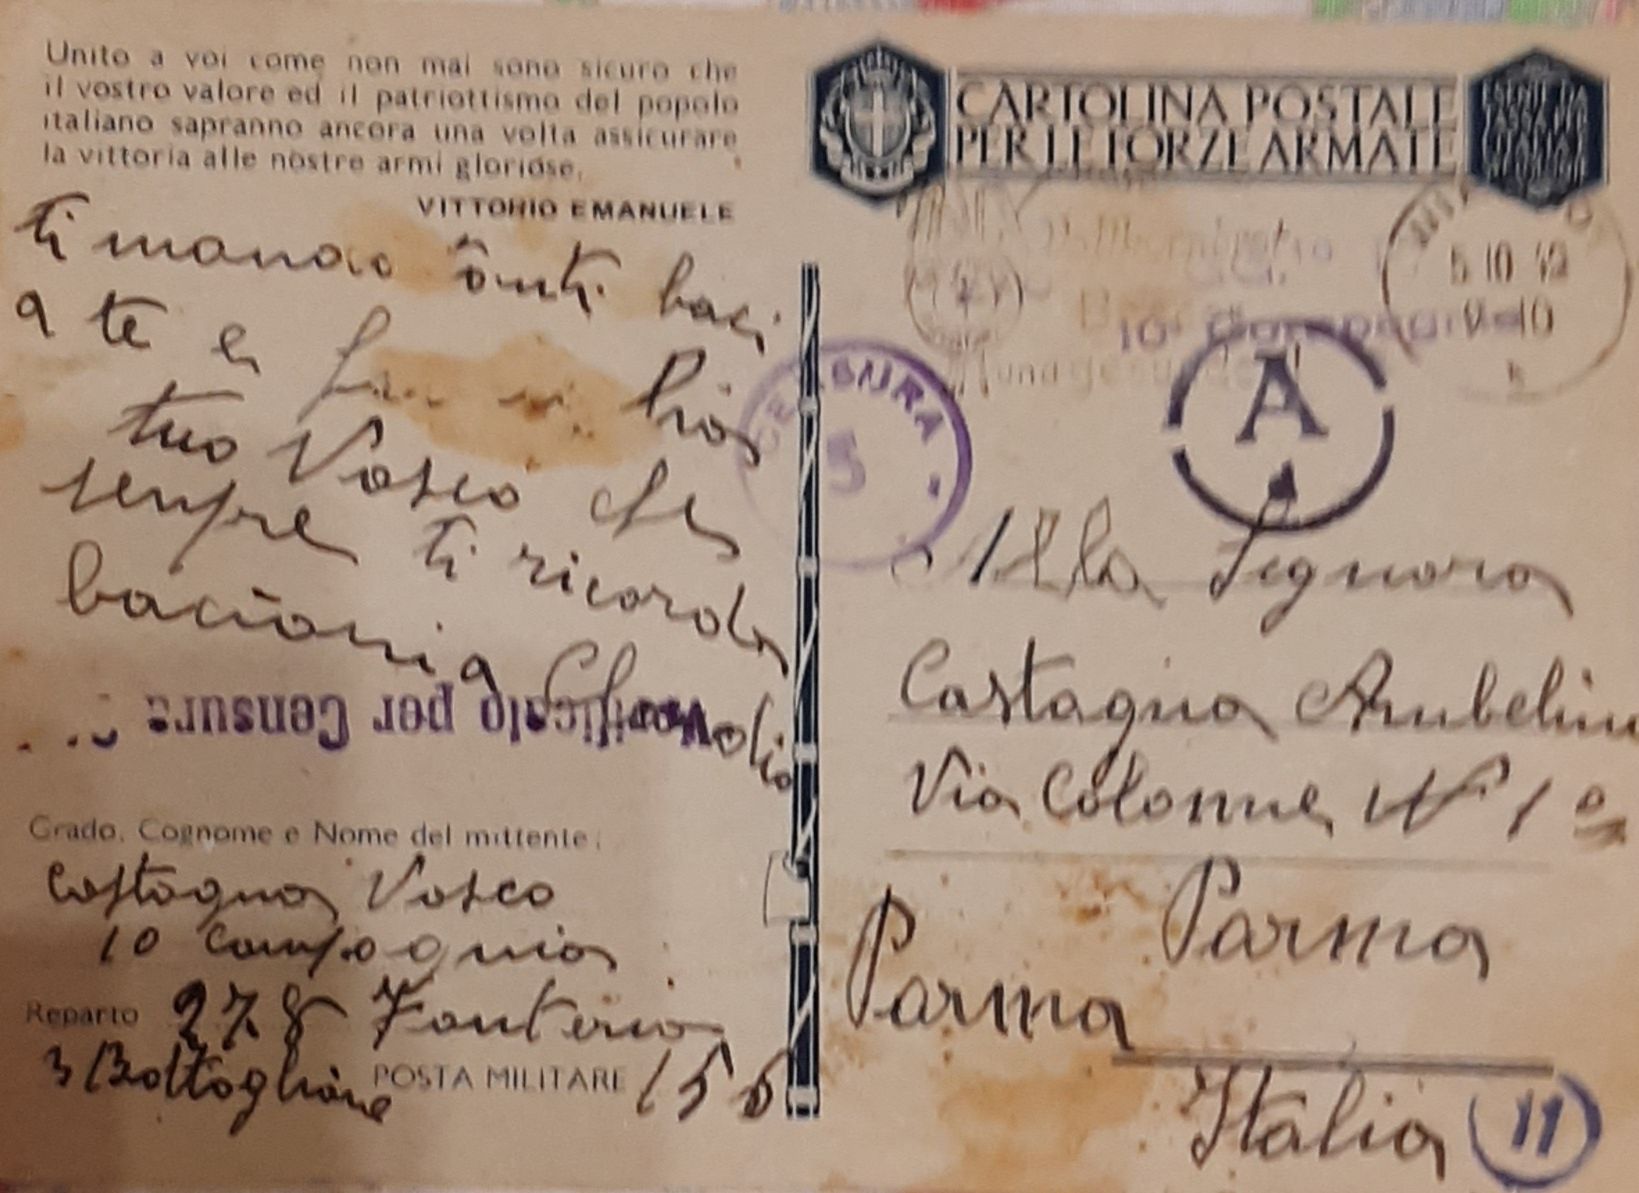 Unito a voi come non mai sono sicuro che
il vostro valore ed il patriottismo del popolo
italiano sapranno ancora una volta assicurare
la vittoria alle nostre armi gloriose.
VITTORIO EMANUELE
ti mando tanti baci
a te e
tuo Vasco che
sempre ti ricorda
bacioni a
Verificato per Censura
Grado, Cognome e Nome del mittente:
Castagna Vasco
10 Compagnia
Reparto 278 Fanteria
3 Battaglione POSTA MILITARE 156
CARTOLINA POSTALE
PER LE FORZE ARMATE
5 10 42
10ª Compagnia
CENSURA
5
A
Alla Signora
Castagna
Via Colonne Nº 1
Parma
Parma
Italia
11